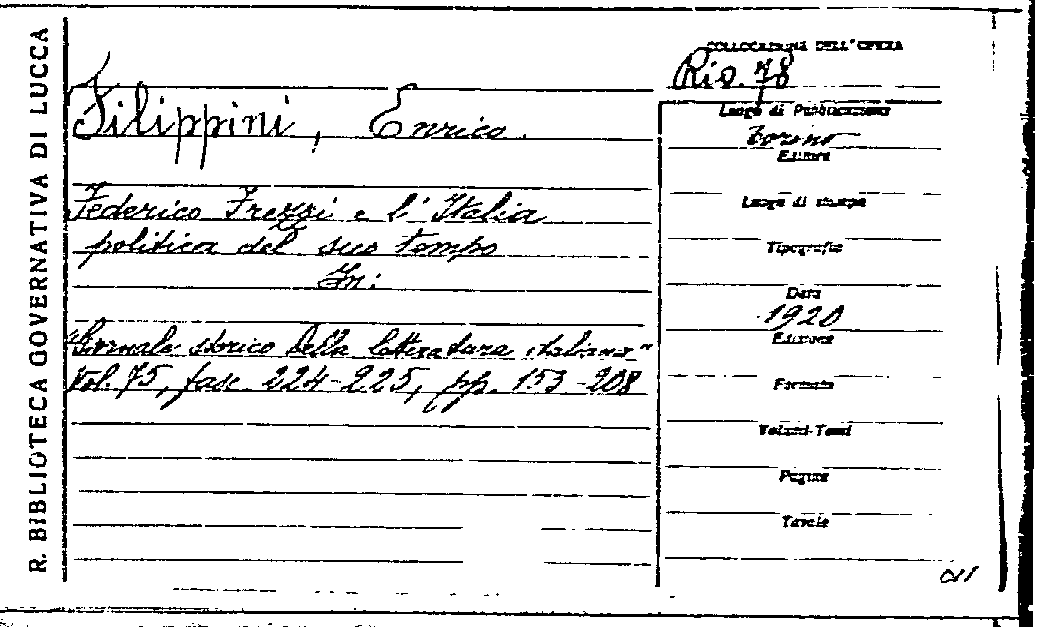 R. BIBLIOTECA GOVERNATIVA DI LUCCA
Filippini, Enrico.
Federico Frezzi e l'Italia
politica del suo tempo
In:
"Giornale storico della letteratura italiana"
Vol. 75, fasc. 224-225, pp. 153-208
COLLOCAZIONE DELL'OPERA
Riv. 78
Luogo di Pubblicazione
Torino
Editore
Luogo di stampa
Tipografia
Data
1920
Edizione
Formato
Volumi-Tomi
Pagine
Tavole